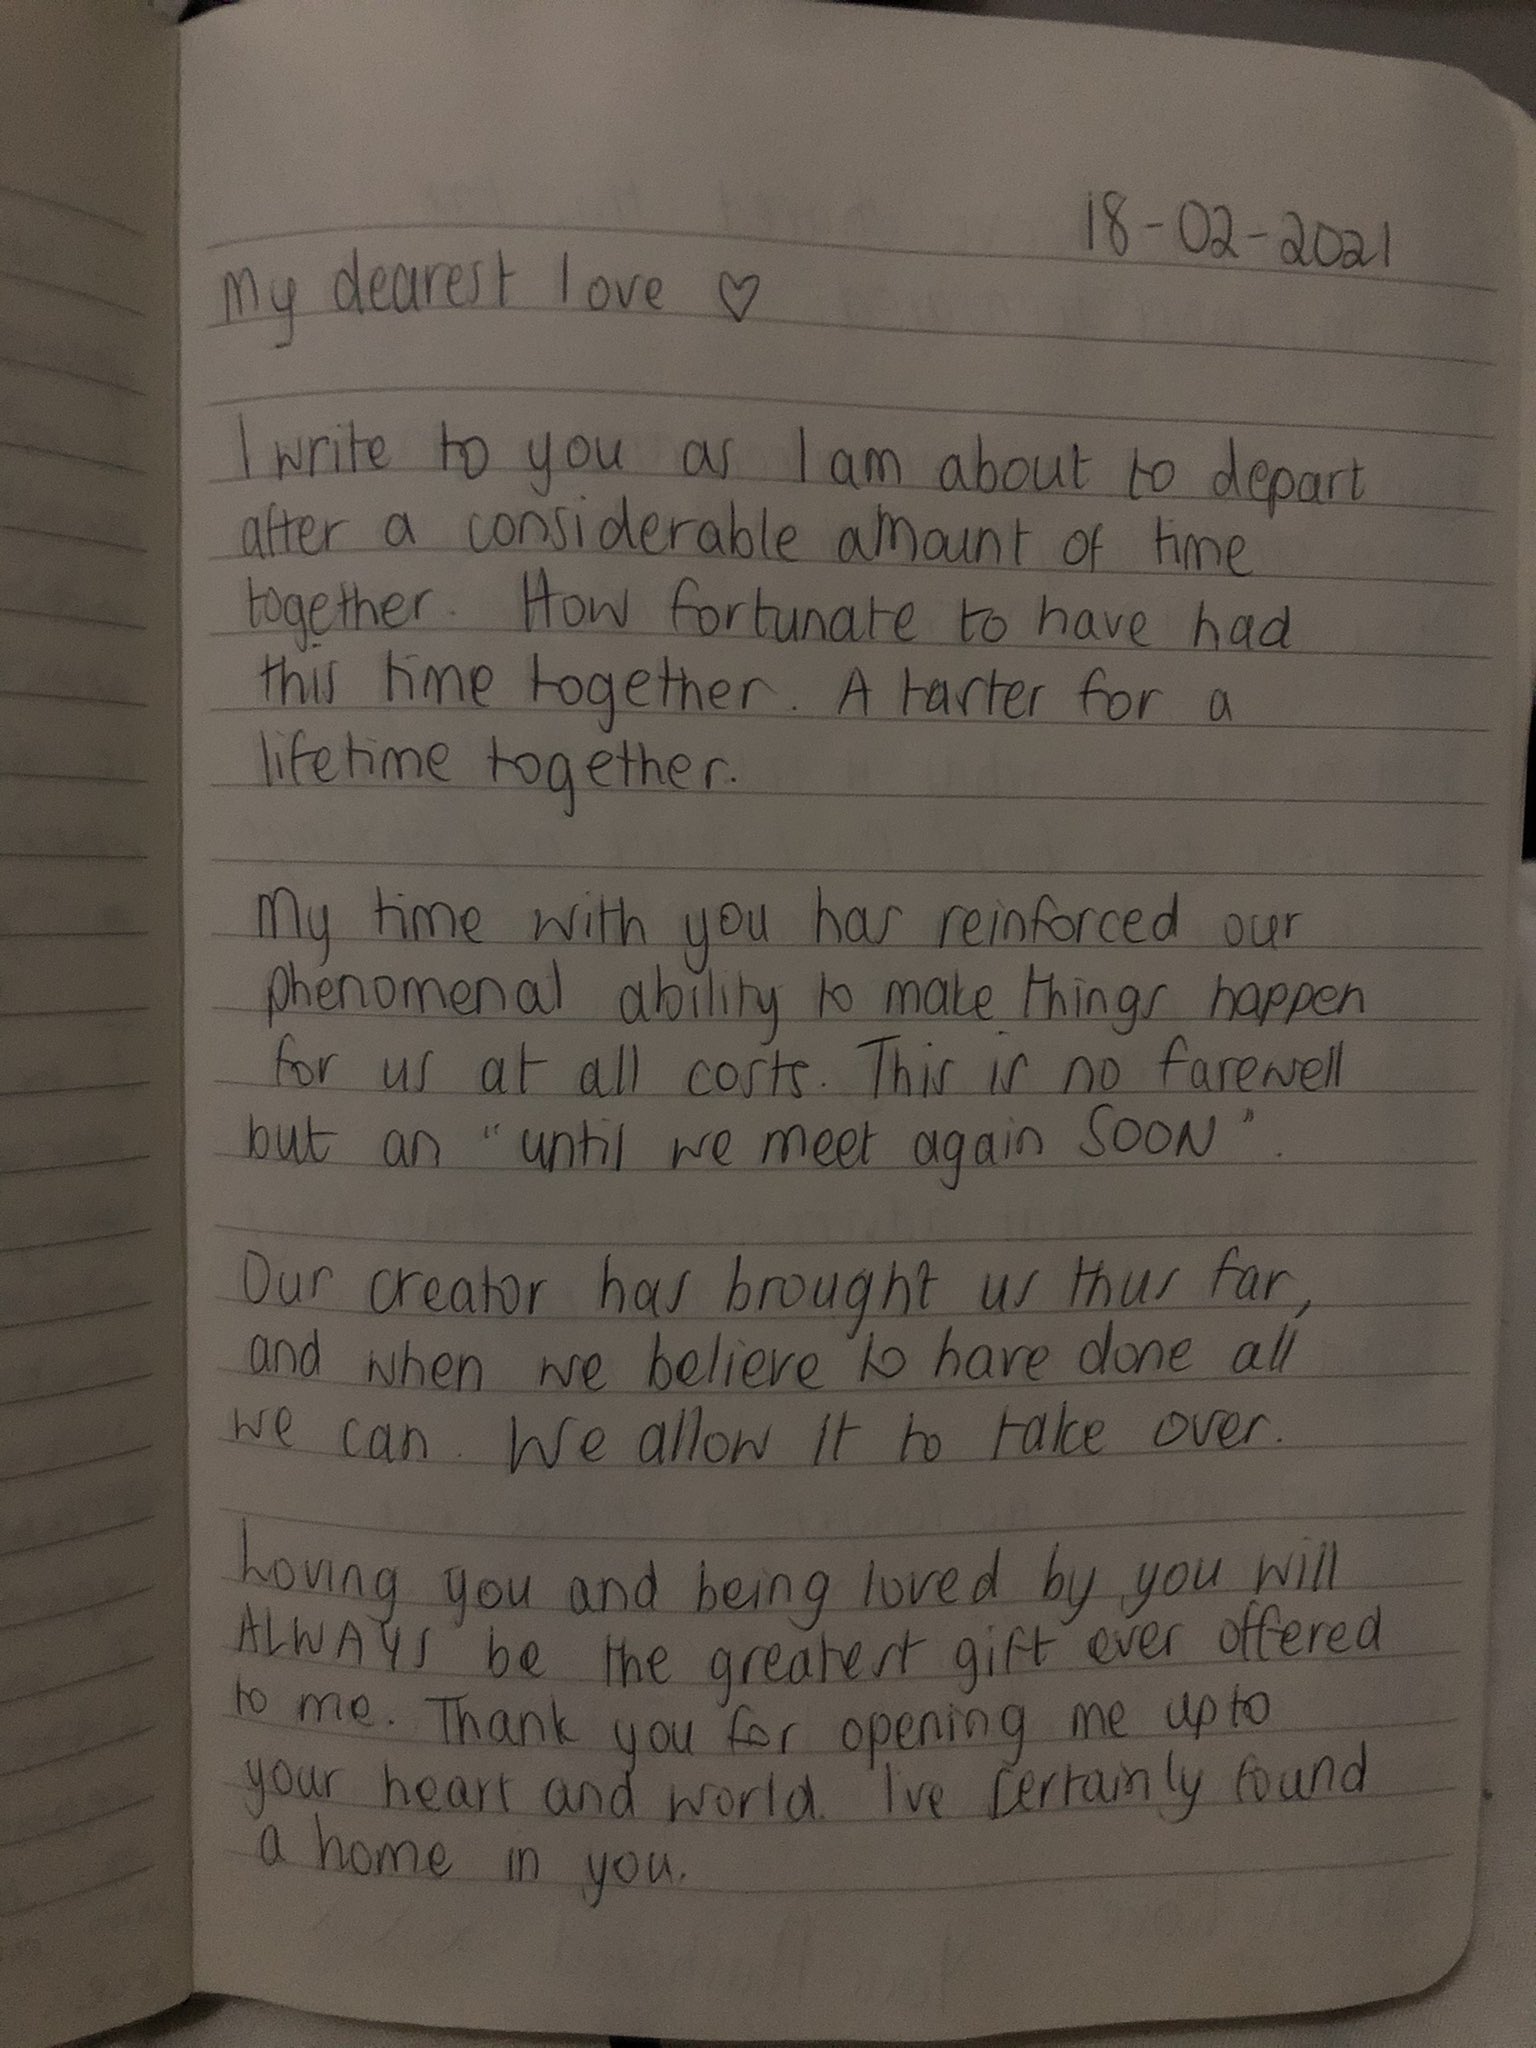 18-02-2021
My dearest love ♡
I write to you as I am about to depart
after a considerable amount of time
together. How fortunate to have had
this time together. A taster for a
lifetime together.
My time with you has reinforced our
phenomenal ability to make things happen
for us at all costs. This is no farewell
but an "until we meet again SOON".
Our creator has brought us thus far,
and when we believe to have done all
we can. We allow it to take over.
Loving you and being loved by you will
ALWAYS be the greatest gift ever offered
to me. Thank you for opening me up to
your heart and world. I've certainly found
a home in you.